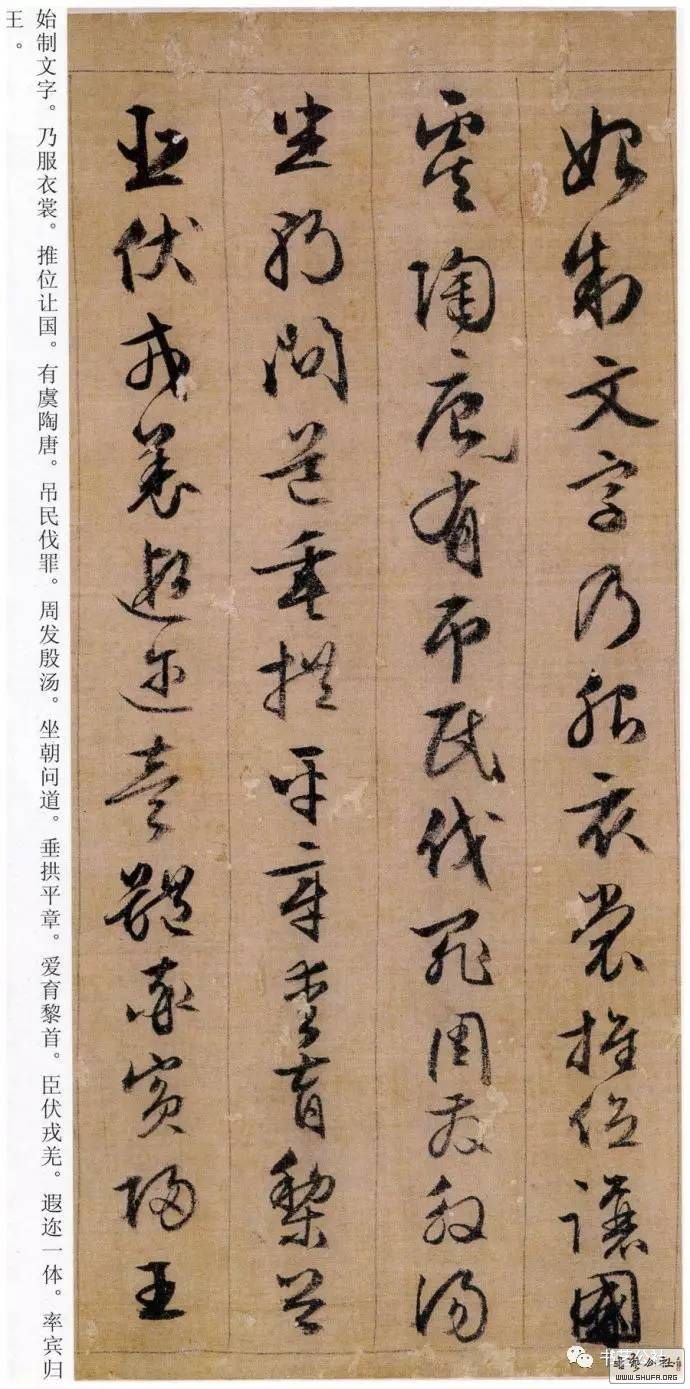 始制文字乃服衣裳推位讓國
虞陶唐有吊民伐罪周發殷湯
坐朝問道垂拱平章愛育黎首
臣伏戎羌遐迩壹體率賓歸王
始制文字。乃服衣裳。推位让国。有虞陶唐。吊民伐罪。周发殷汤。坐朝问道。垂拱平章。爱育黎首。臣伏戎羌。遐迩一体。率宾归
王。
书艺公社
书艺公社
WWW.SHUFA.ORG